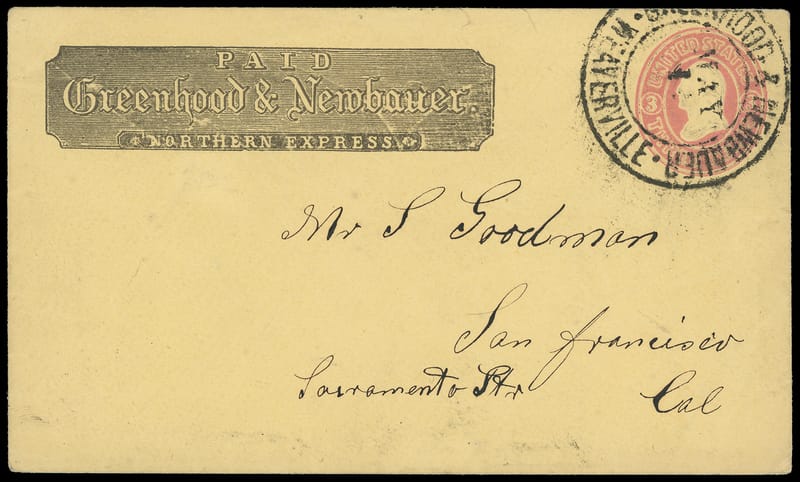 PAID
Greenhood & Newbauer.
NORTHERN EXPRESS
GREENHOOD & NEWBAUER.
WEAVERVILLE.
MAY
1
UNITED STATES
3
Mr S Goodman
San francisco
Sacramento Str
Cal